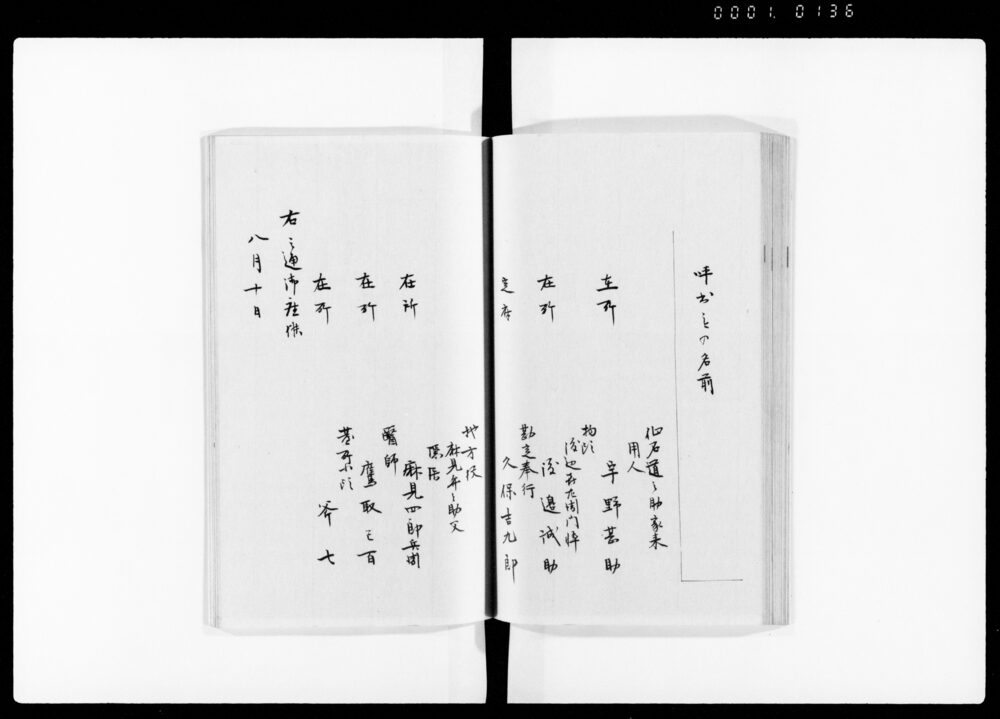 0001. 0136
呼出もの名前
仙石道之助家来
用人
在所 宇野甚助
物頭
渡辺 左衛門悴
在所 渡邉誠助
勘定奉行
定府 久保吉九郎
地方役
麻見弁之助父
隠居
在所 麻見四郎兵衛
醫師
在所 鷹取己百
在所 斧七
右之通御座候
八月十日